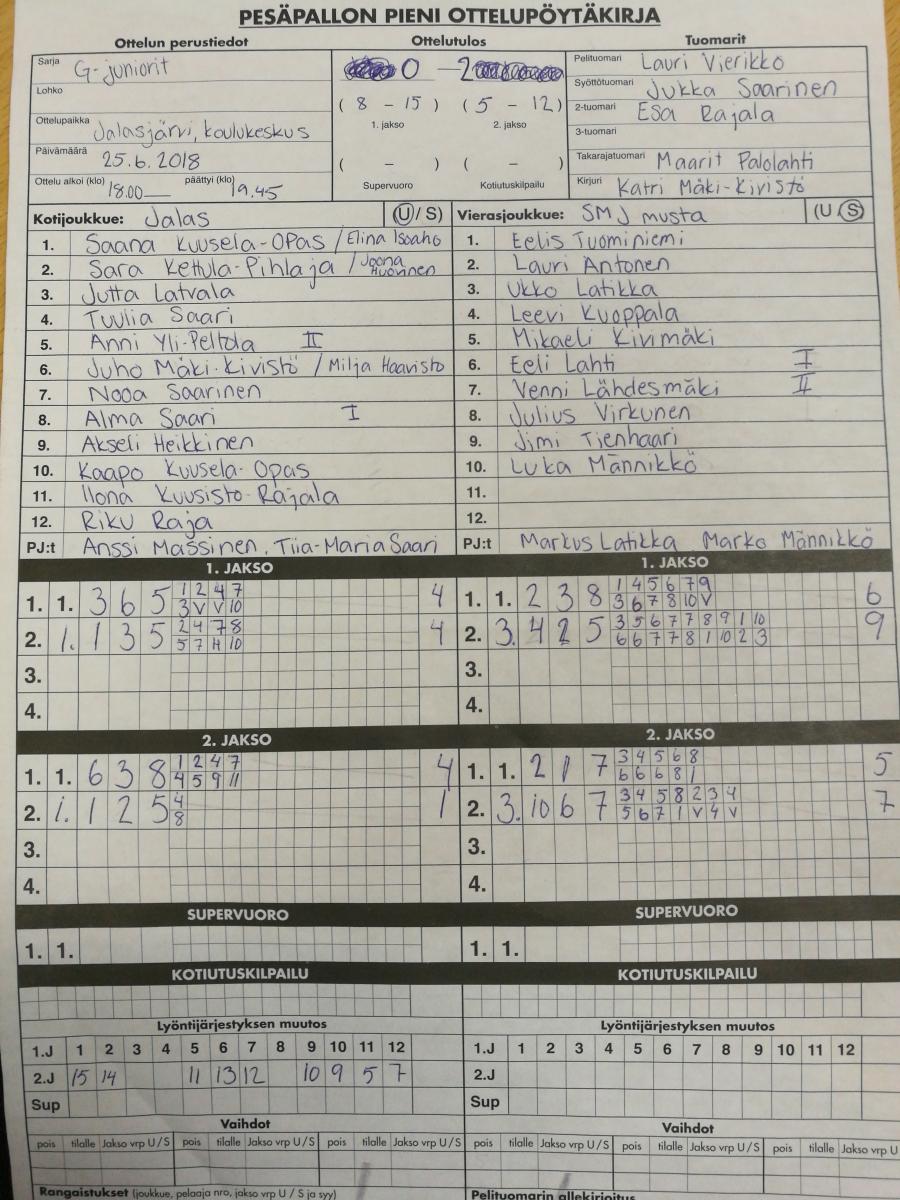 PESÄPALLON PIENI OTTELUPÖYTÄKIRJA
Ottelun perustiedot
Sarja G-juniorit
Lohko
Ottelupaikka Jalasjärvi, koulukeskus
Päivämäärä 25.6.2018
Ottelu alkoi (klo) 18.00 päättyi (klo) 19.45
Ottelutulos
0 - 2
( 8 - 15 ) ( 5 - 12 )
1. jakso 2. jakso
( - ) ( - )
Supervuoro Kotiutuskilpailu
Tuomarit
Pelituomari Lauri Vierikko
Syöttötuomari Jukka Saarinen
2-tuomari Esa Rajala
3-tuomari
Takarajatuomari Maarit Palolahti
Kirjuri Katri Mäki-Kivistö
Kotijoukkue: Jalas (U / S)
1. Saana Kuusela-Opas / Elina Isoaho
2. Sara Kettula-Pihlaja / Joona Huovinen
3. Jutta Latvala
4. Tuulia Saari
5. Anni Yli-Peltola II
6. Juho Mäki-Kivistö / Milja Haavisto
7. Nooa Saarinen
8. Alma Saari I
9. Akseli Heikkinen
10. Kaapo Kuusela-Opas
11. Ilona Kuusisto-Rajala
12. Riku Raja
PJ:t Anssi Massinen, Tiia-Maria Saari
Vierasjoukkue: SMJ musta (U / S)
1. Eelis Tuominiemi
2. Lauri Antonen
3. Ukko Latikka
4. Leevi Kuoppala
5. Mikaeli Kivimäki
6. Eeli Lahti I
7. Venni Lähdesmäki II
8. Julius Virkunen
9. Jimi Tienhaari
10. Luka Männikkö
11.
12.
PJ:t Markus Latikka Marko Männikkö
1. JAKSO
1. 1. 3 6 5 1 2 4 7 4
3 V V 10
2. 1. 1 3 5 2 4 7 8 4
5 7 11 10
3.
4.
1. JAKSO
1. 1. 2 3 8 1 4 5 6 7 9 6
3 6 7 8 10 V
2. 3. 4 2 5 3 5 6 7 7 8 9 1 10 9
6 6 7 7 8 1 10 2 3
3.
4.
2. JAKSO
1. 1. 6 3 8 1 2 4 7 4
4 5 9 11
2. 1. 1 2 5 4 1
8
3.
4.
2. JAKSO
1. 1. 2 1 7 3 4 5 6 8 5
6 6 6 8 1
2. 3. 10 6 7 3 4 5 8 2 3 4 7
5 6 7 1 V 4 V
3.
4.
SUPERVUORO
1. 1.
SUPERVUORO
1. 1.
KOTIUTUSKILPAILU
KOTIUTUSKILPAILU
Lyöntijärjestyksen muutos
1.J 1 2 3 4 5 6 7 8 9 10 11 12
2.J 15 14 11 13 12 10 9 5 7
Sup
Lyöntijärjestyksen muutos
1.J 1 2 3 4 5 6 7 8 9 10 11 12
2.J
Sup
Vaihdot
pois tilalle Jakso vrp U / S pois tilalle Jakso vrp U / S pois tilalle Jakso vrp U / S
Vaihdot
pois tilalle Jakso vrp U / S pois tilalle Jakso vrp U / S pois tilalle Jakso vrp U
Rangaistukset (joukkue, pelaaja nro, jakso vrp U / S ja syy)
Pelituomarin allekirjoitus